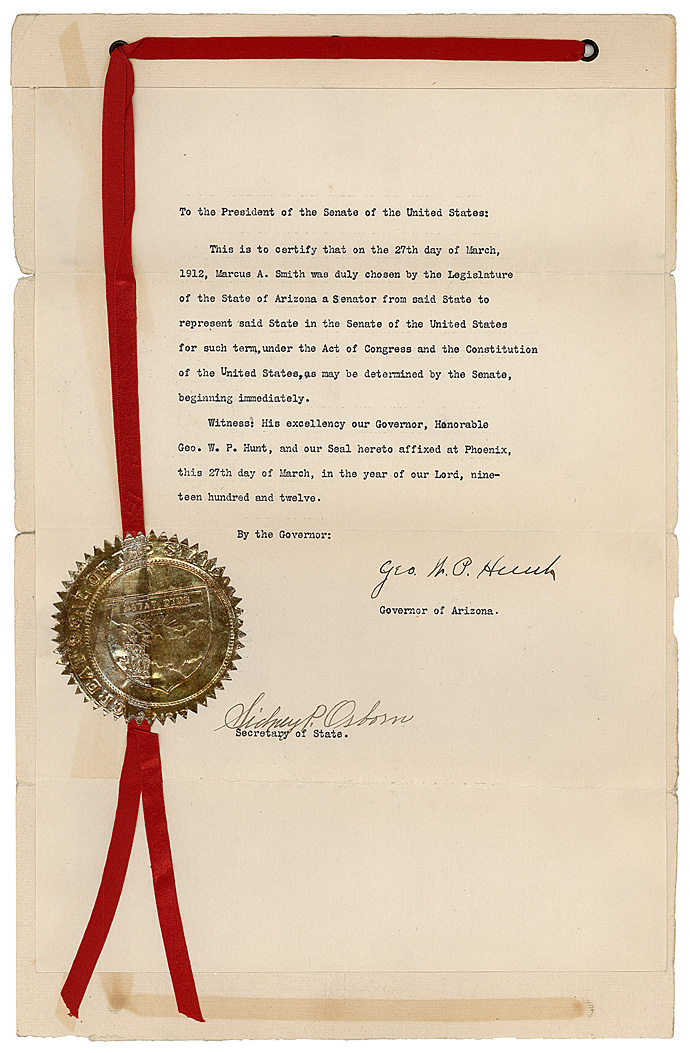 To the President of the Senate of the United States:
This is to certify that on the 27th day of March,
1912, Marcus A. Smith was duly chosen by the Legislature
of the State of Arizona a Senator from said State to
represent said State in the Senate of the United States
for such term,under the Act of Congress and the Constitution
of the United States,as may be determined by the Senate,
beginning immediately.
Witness: His excellency our Governor, Honorable
Geo. W. P. Hunt, and our Seal hereto affixed at Phoenix,
this 27th day of March, in the year of our Lord, nine-
teen hundred and twelve.
By the Governor:
Geo. W. P. Hunt
Governor of Arizona.
GREAT SEAL OF THE STATE
DITAT DEUS
Sidney P. Osborn
Secretary of State.